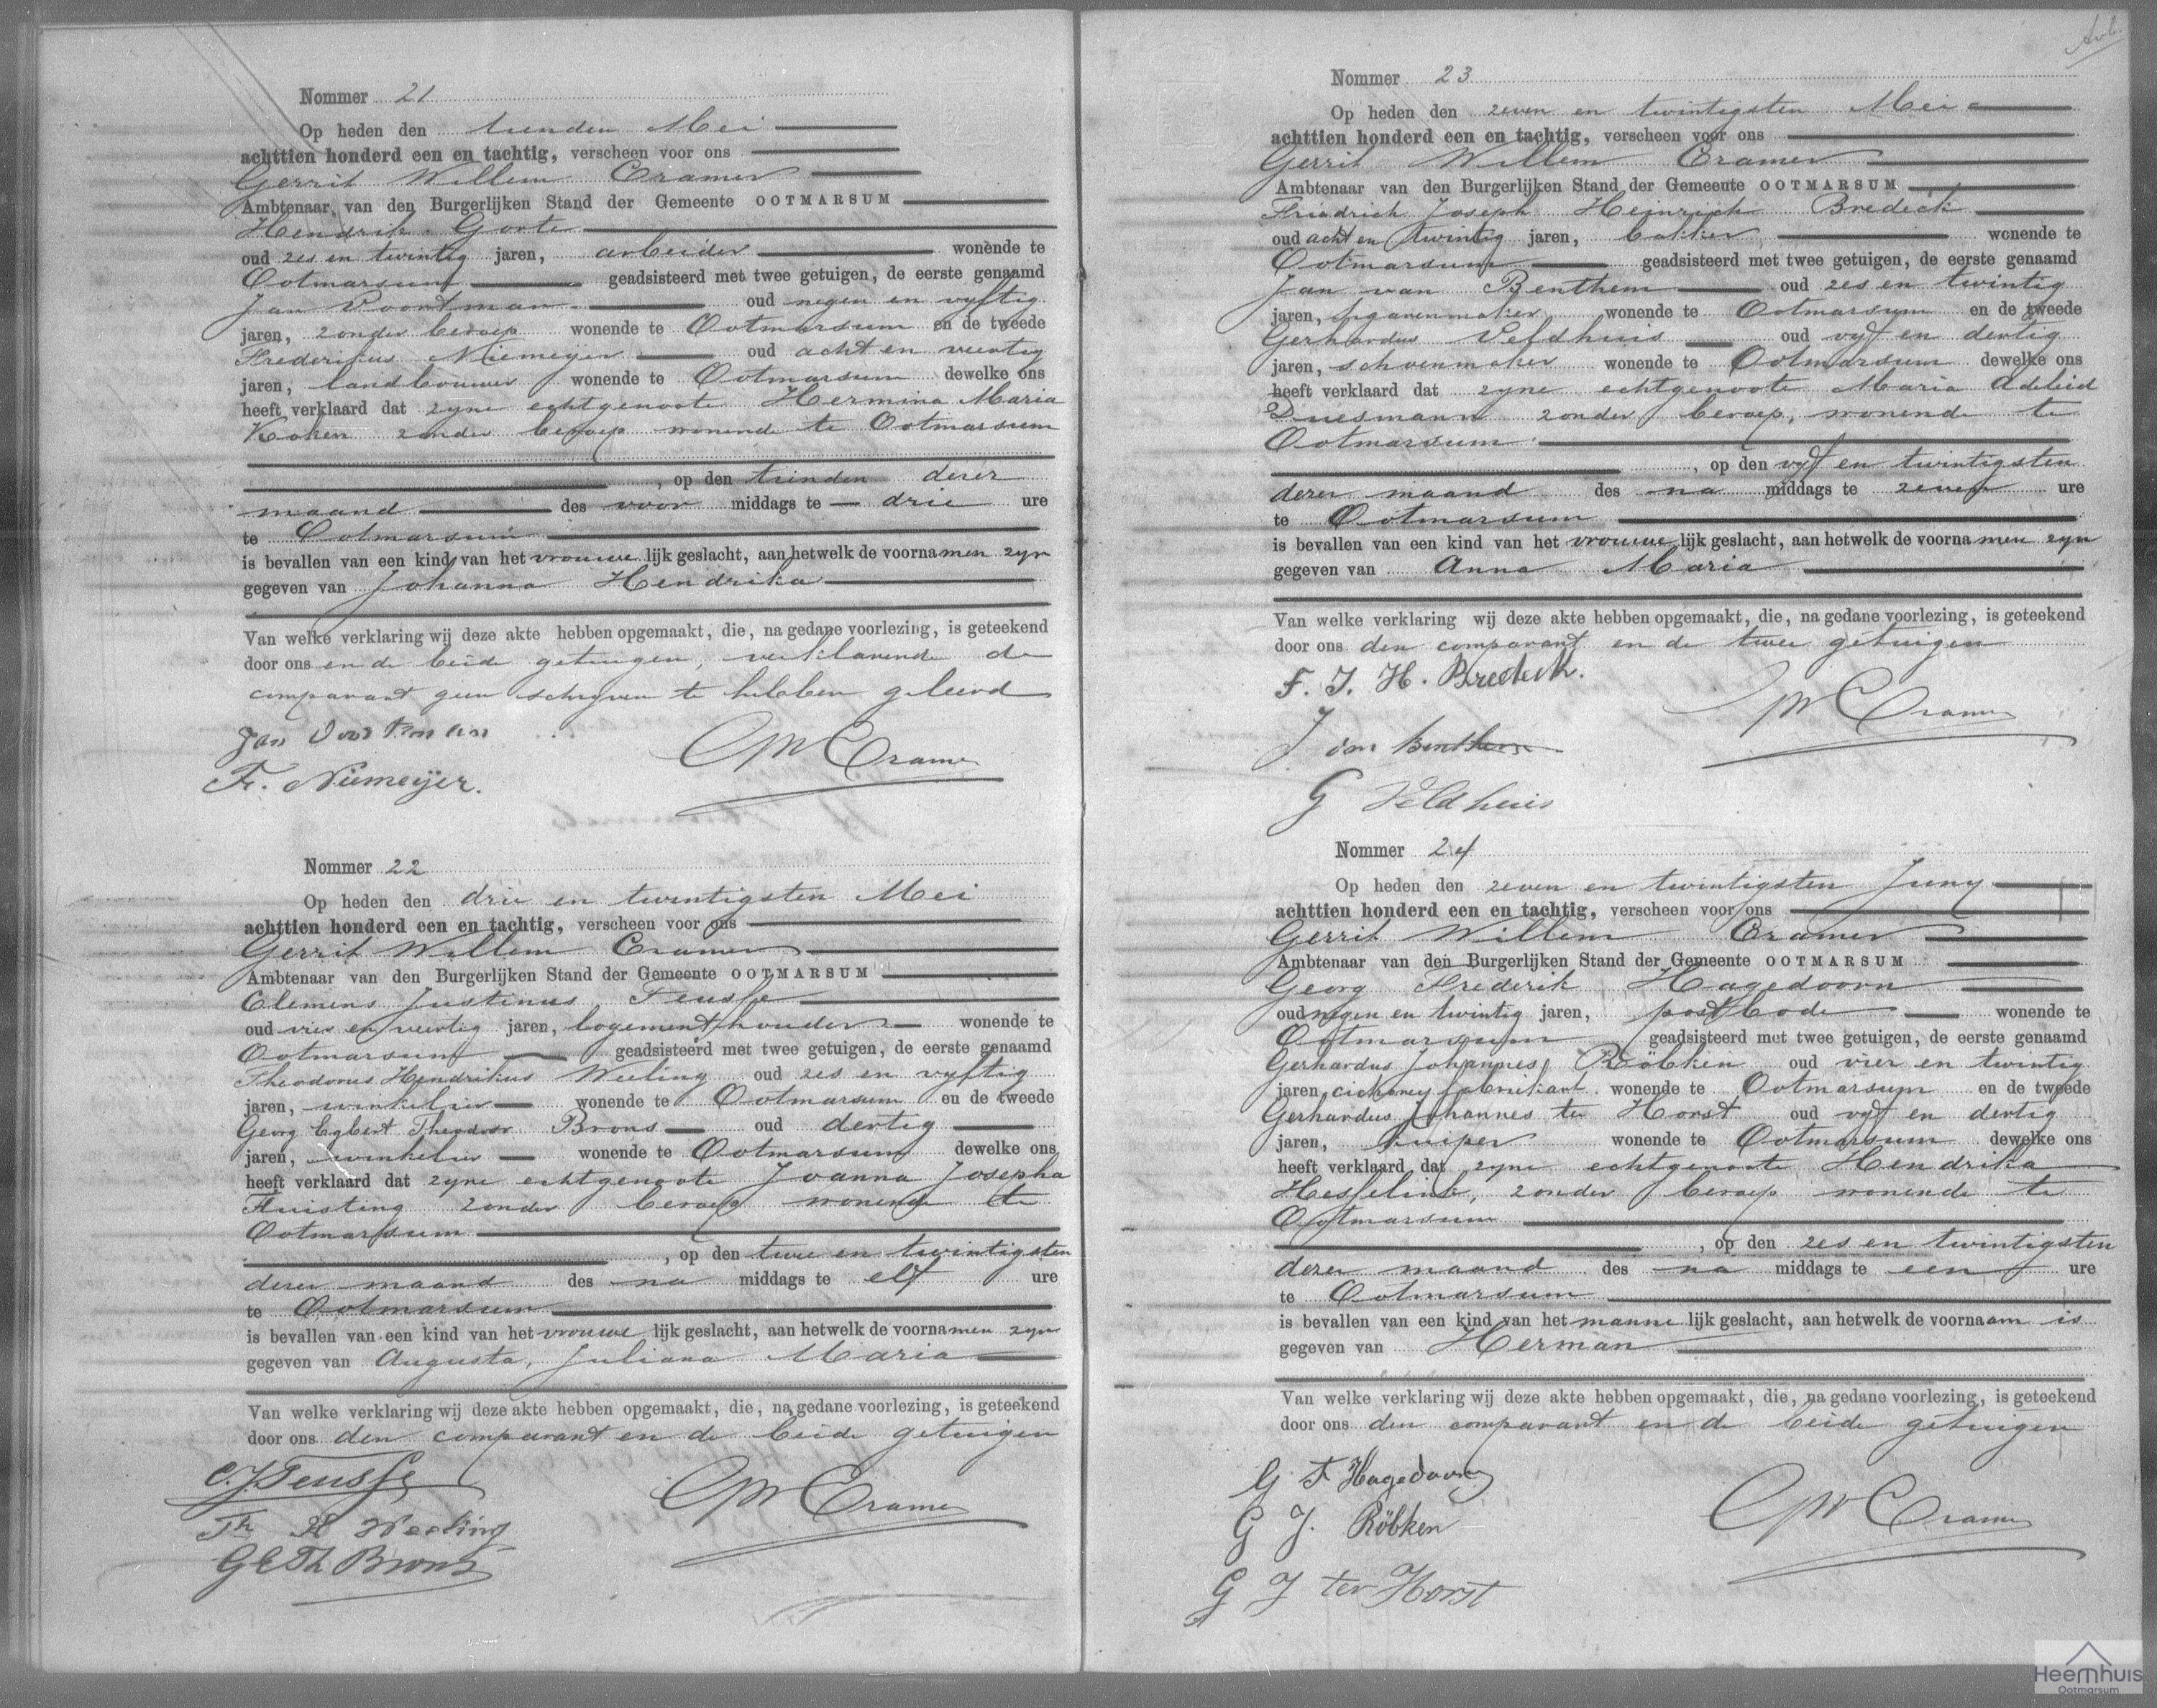 Nommer 21
Op heden den tienden Mei
achttien honderd een en tachtig, verscheen voor ons
Gerrit Willem Cramer
Ambtenaar van den Burgerlijken Stand der Gemeente OOTMARSUM
Hendrik Gorte
oud zes en twintig jaren, arbeider wonende te
Ootmarsum geadsisteerd met twee getuigen, de eerste genaamd
Jan Voortman oud negen en vyftig
jaren, zonder beroep wonende te Ootmarsum en de tweede
Frederikus Niemeyer oud acht en veertig
jaren, landbouwer wonende te Ootmarsum dewelke ons
heeft verklaard dat zyne echtgenoote Hermina Maria
Koken zonder beroep wonende te Ootmarsum
, op den tienden dezer
maand des voor middags te drie ure
te Ootmarsum
is bevallen van een kind van het vrouwe lijk geslacht, aan hetwelk de voornamen zyn
gegeven van Johanna Hendrika
Van welke verklaring wij deze akte hebben opgemaakt, die, na gedane voorlezing, is geteekend
door ons en de beide getuigen, verklarende de
comparant geen schryven te hebben geleerd
Jan Voortman
F. Niemeijer.
GW Cramer
Nommer 22
Op heden den drie en twintigsten Mei
achttien honderd een en tachtig, verscheen voor ons
Gerrit Willem Cramer
Ambtenaar van den Burgerlijken Stand der Gemeente OOTMARSUM
Clemens Justinus Teusse
oud vier en veertig jaren, logementhouder wonende te
Ootmarsum geadsisteerd met twee getuigen, de eerste genaamd
Theodorus Hendrikus Weeling oud zes en vyftig
jaren, winkelier wonende te Ootmarsum en de tweede
Georg Egbert Theodoor Brons oud dertig
jaren, winkelier wonende te Ootmarsum dewelke ons
heeft verklaard dat zyne echtgenoote Joanna Josepha
Fluisting zonder beroep wonende te
Ootmarsum
, op den twee en twintigsten
dezer maand des na middags te elf ure
te Ootmarsum
is bevallen van een kind van het vrouwe lijk geslacht, aan hetwelk de voornamen zyn
gegeven van Augusta, Juliana Maria
Van welke verklaring wij deze akte hebben opgemaakt, die, na gedane voorlezing, is geteekend
door ons den comparant en de beide getuigen
C. J Teusse
Th H Weeling
G E Th Brons
GW Cramer
Nommer 23
Op heden den zeven en twintigsten Mei
achttien honderd een en tachtig, verscheen voor ons
Gerrit Willem Cramer
Ambtenaar van den Burgerlijken Stand der Gemeente OOTMARSUM
Friedrich Joseph Heinrich Bredeck
oud acht en twintig jaren, bakker wonende te
Ootmarsum geadsisteerd met twee getuigen, de eerste genaamd
Jan van Benthem oud zes en twintig
jaren, sigarenmaker wonende te Ootmarsum en de tweede
Gerhardus Veldhuis oud vyf en dertig
jaren, schoenmaker wonende te Ootmarsum dewelke ons
heeft verklaard dat zyne echtgenoote Maria Adeleid
Duesmann zonder beroep, wonende te
Ootmarsum
, op den vyf en twintigsten
dezer maand des na middags te zeven ure
te Ootmarsum
is bevallen van een kind van het vrouwe lijk geslacht, aan hetwelk de voornamen zyn
gegeven van Anna Maria
Van welke verklaring wij deze akte hebben opgemaakt, die, na gedane voorlezing, is geteekend
door ons den comparant en de twee getuigen
F. J. H. Bredeck.
J van Benthem
G Veldhuis
GW Cramer
Nommer 24
Op heden den zeven en twintigsten Juny
achttien honderd een en tachtig, verscheen voor ons
Gerrit Willem Cramer
Ambtenaar van den Burgerlijken Stand der Gemeente OOTMARSUM
Georg Frederik Hagedoorn
oud negen en twintig jaren, postbode wonende te
Ootmarsum geadsisteerd met twee getuigen, de eerste genaamd
Gerhardus Johannes Röbken oud vier en twintig
jaren, cichorey fabrikant wonende te Ootmarsum en de tweede
Gerhardus Johannes ter Horst oud vyf en dertig
jaren, kuiper wonende te Ootmarsum dewelke ons
heeft verklaard dat zyne echtgenoote Hendrika
Hesselink, zonder beroep wonende te
Ootmarsum
, op den zes en twintigsten
dezer maand des na middags te een ure
te Ootmarsum
is bevallen van een kind van het manne lijk geslacht, aan hetwelk de voornaam is
gegeven van Herman
Van welke verklaring wij deze akte hebben opgemaakt, die, na gedane voorlezing, is geteekend
door ons den comparant en de beide getuigen
G F Hagedoorn
G J. Röbken
G J ter Horst
GW Cramer
Heemhuis
Ootmarsum